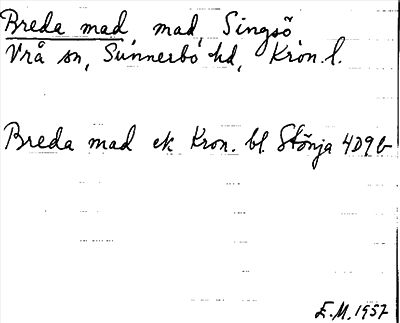 Breda mad, mad, Singsö
Vrå sn, Sunnerbo hd, Kron. l.
Breda mad ek Kron. bl. Stönja 4D9b
E.M. 1957